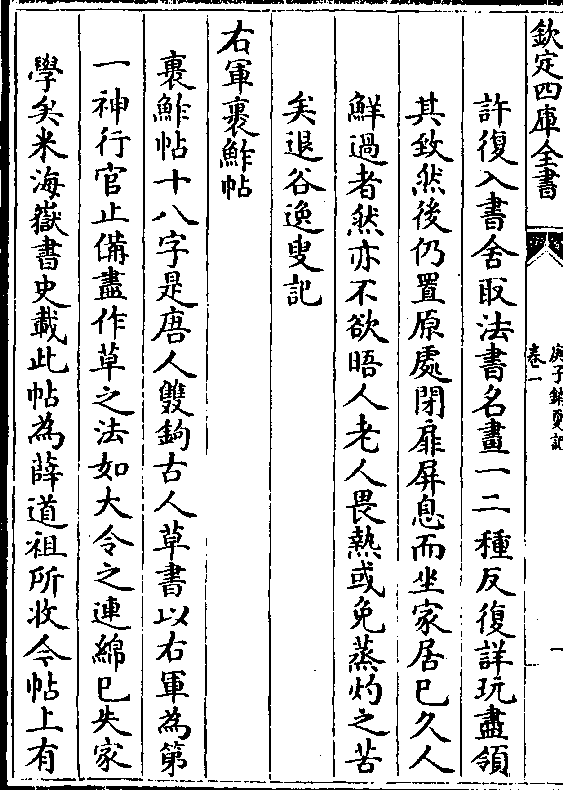 欽定四庫全書
庚子銷夏記
卷一
一
許復入書舍取法書名畫一二種反復詳玩盡領
其致然後仍置原處閉扉屏息而坐家居已久人
鮮過者然亦不欲晤人老人畏熱或免蒸灼之苦
矣退谷逸叟記
右軍裹鮓帖
裹鮓帖十八字是唐人雙鉤古人草書以右軍為第
一神行官止備盡作草之法如大令之連綿已失家
學矣米海嶽書史載此帖為薛道祖所收今帖上有